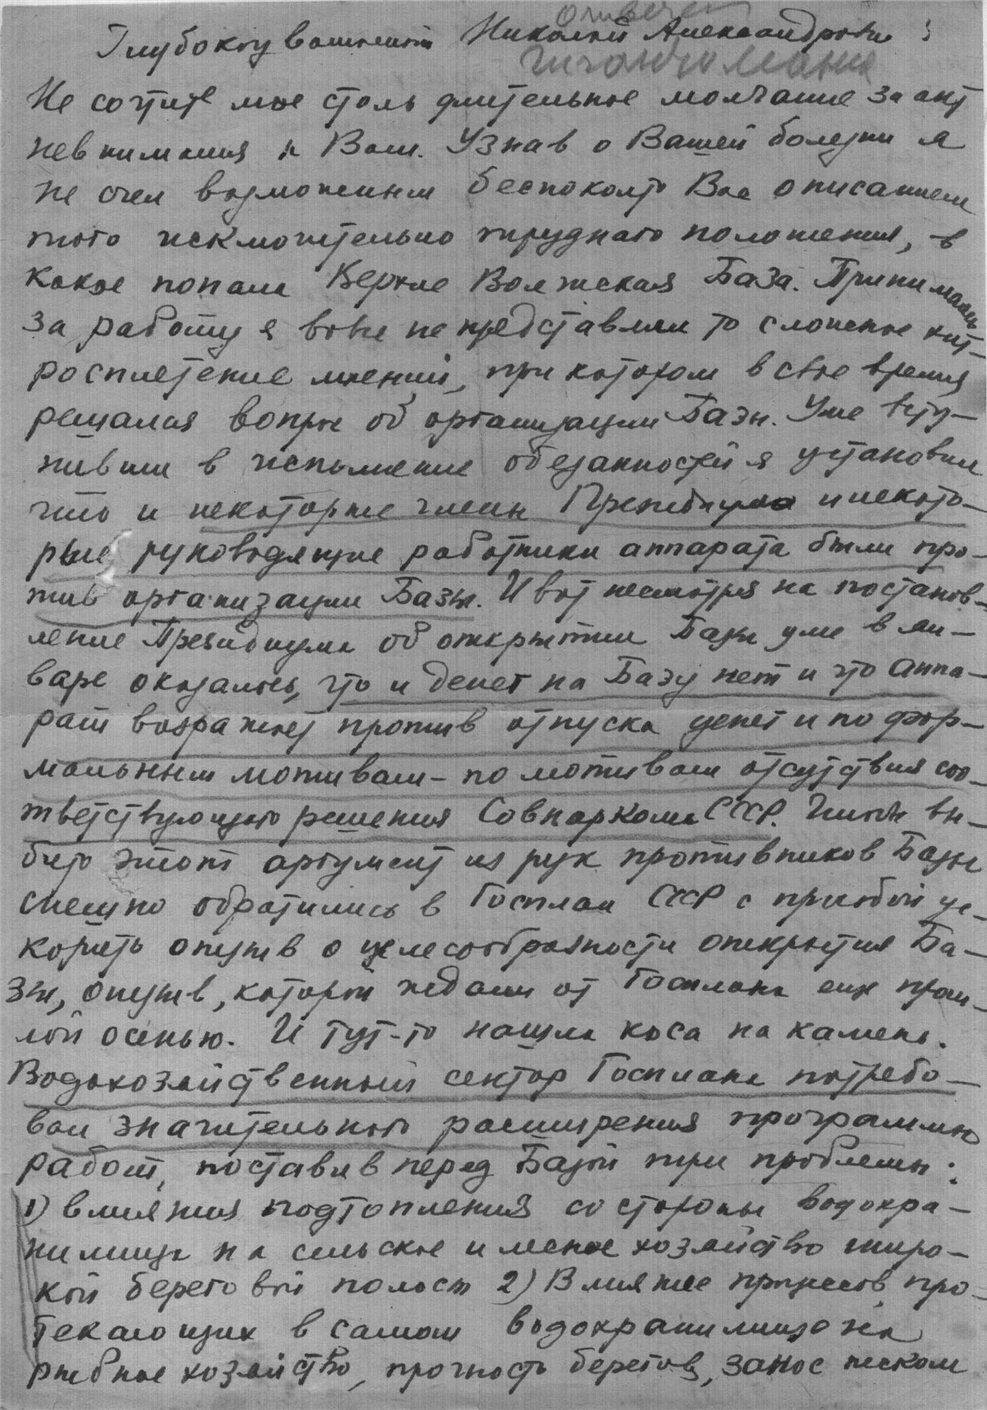 Глубокоуважаемый Николай Александрович!
Не сочтите мое столь длительное молчание за акт
невнимания к Вам. Узнав о Вашей болезни я
не счел возможным беспокоить Вас описанием
того исключительно трудного положения, в
какое попала Верхне Волжская База. Принимаясь
за работу я вовсе не представлял то сложное хит-
росплетение мнений, при котором в свое время
решался вопрос об организации Базы. Уже всту-
пивши в исполнение обязанностей я установил
что и некоторые члены Президиума и некото-
рые руководящие работники аппарата были про-
тив организации Базы. И вот несмотря на постанов-
ление Президиума об открытии Базы уже в ян-
варе оказалось, что и денег на Базу нет и что аппа-
рат возражает против отпуска денег и по фор-
мальным мотивам – по мотивам отсутствия соо-
тветствующего решения Совнаркома СССР. Чтобы вы-
бить этот аргумент из рук противников Базы
спешно обратились в Госплан СССР с просьбой ус-
корить отзыв о целесообразности открытия Ба-
зы, отзыв, который ждали от Госплана еще прош-
лой осенью. И тут-то нашла коса на камень.
Водохозяйственный сектор Госплана потребо-
вал значительного расширения программы
работ, поставив перед Базой три проблемы:
1) влияния подтопления со стороны водохра-
нилища на сельское и лесное хозяйство широ-
кой береговой полосы 2) Влияние процессов про-
текающих в самом водохранилище на
рыбное хозяйство, прочность берегов, занос песком